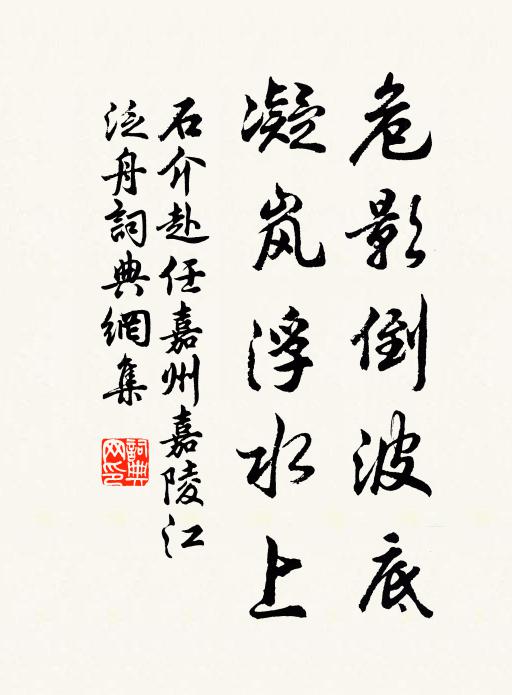 危影倒波底
凝岚浮水上
石介赴任嘉州嘉陵江
泛舟詞典網集
詞典
网印